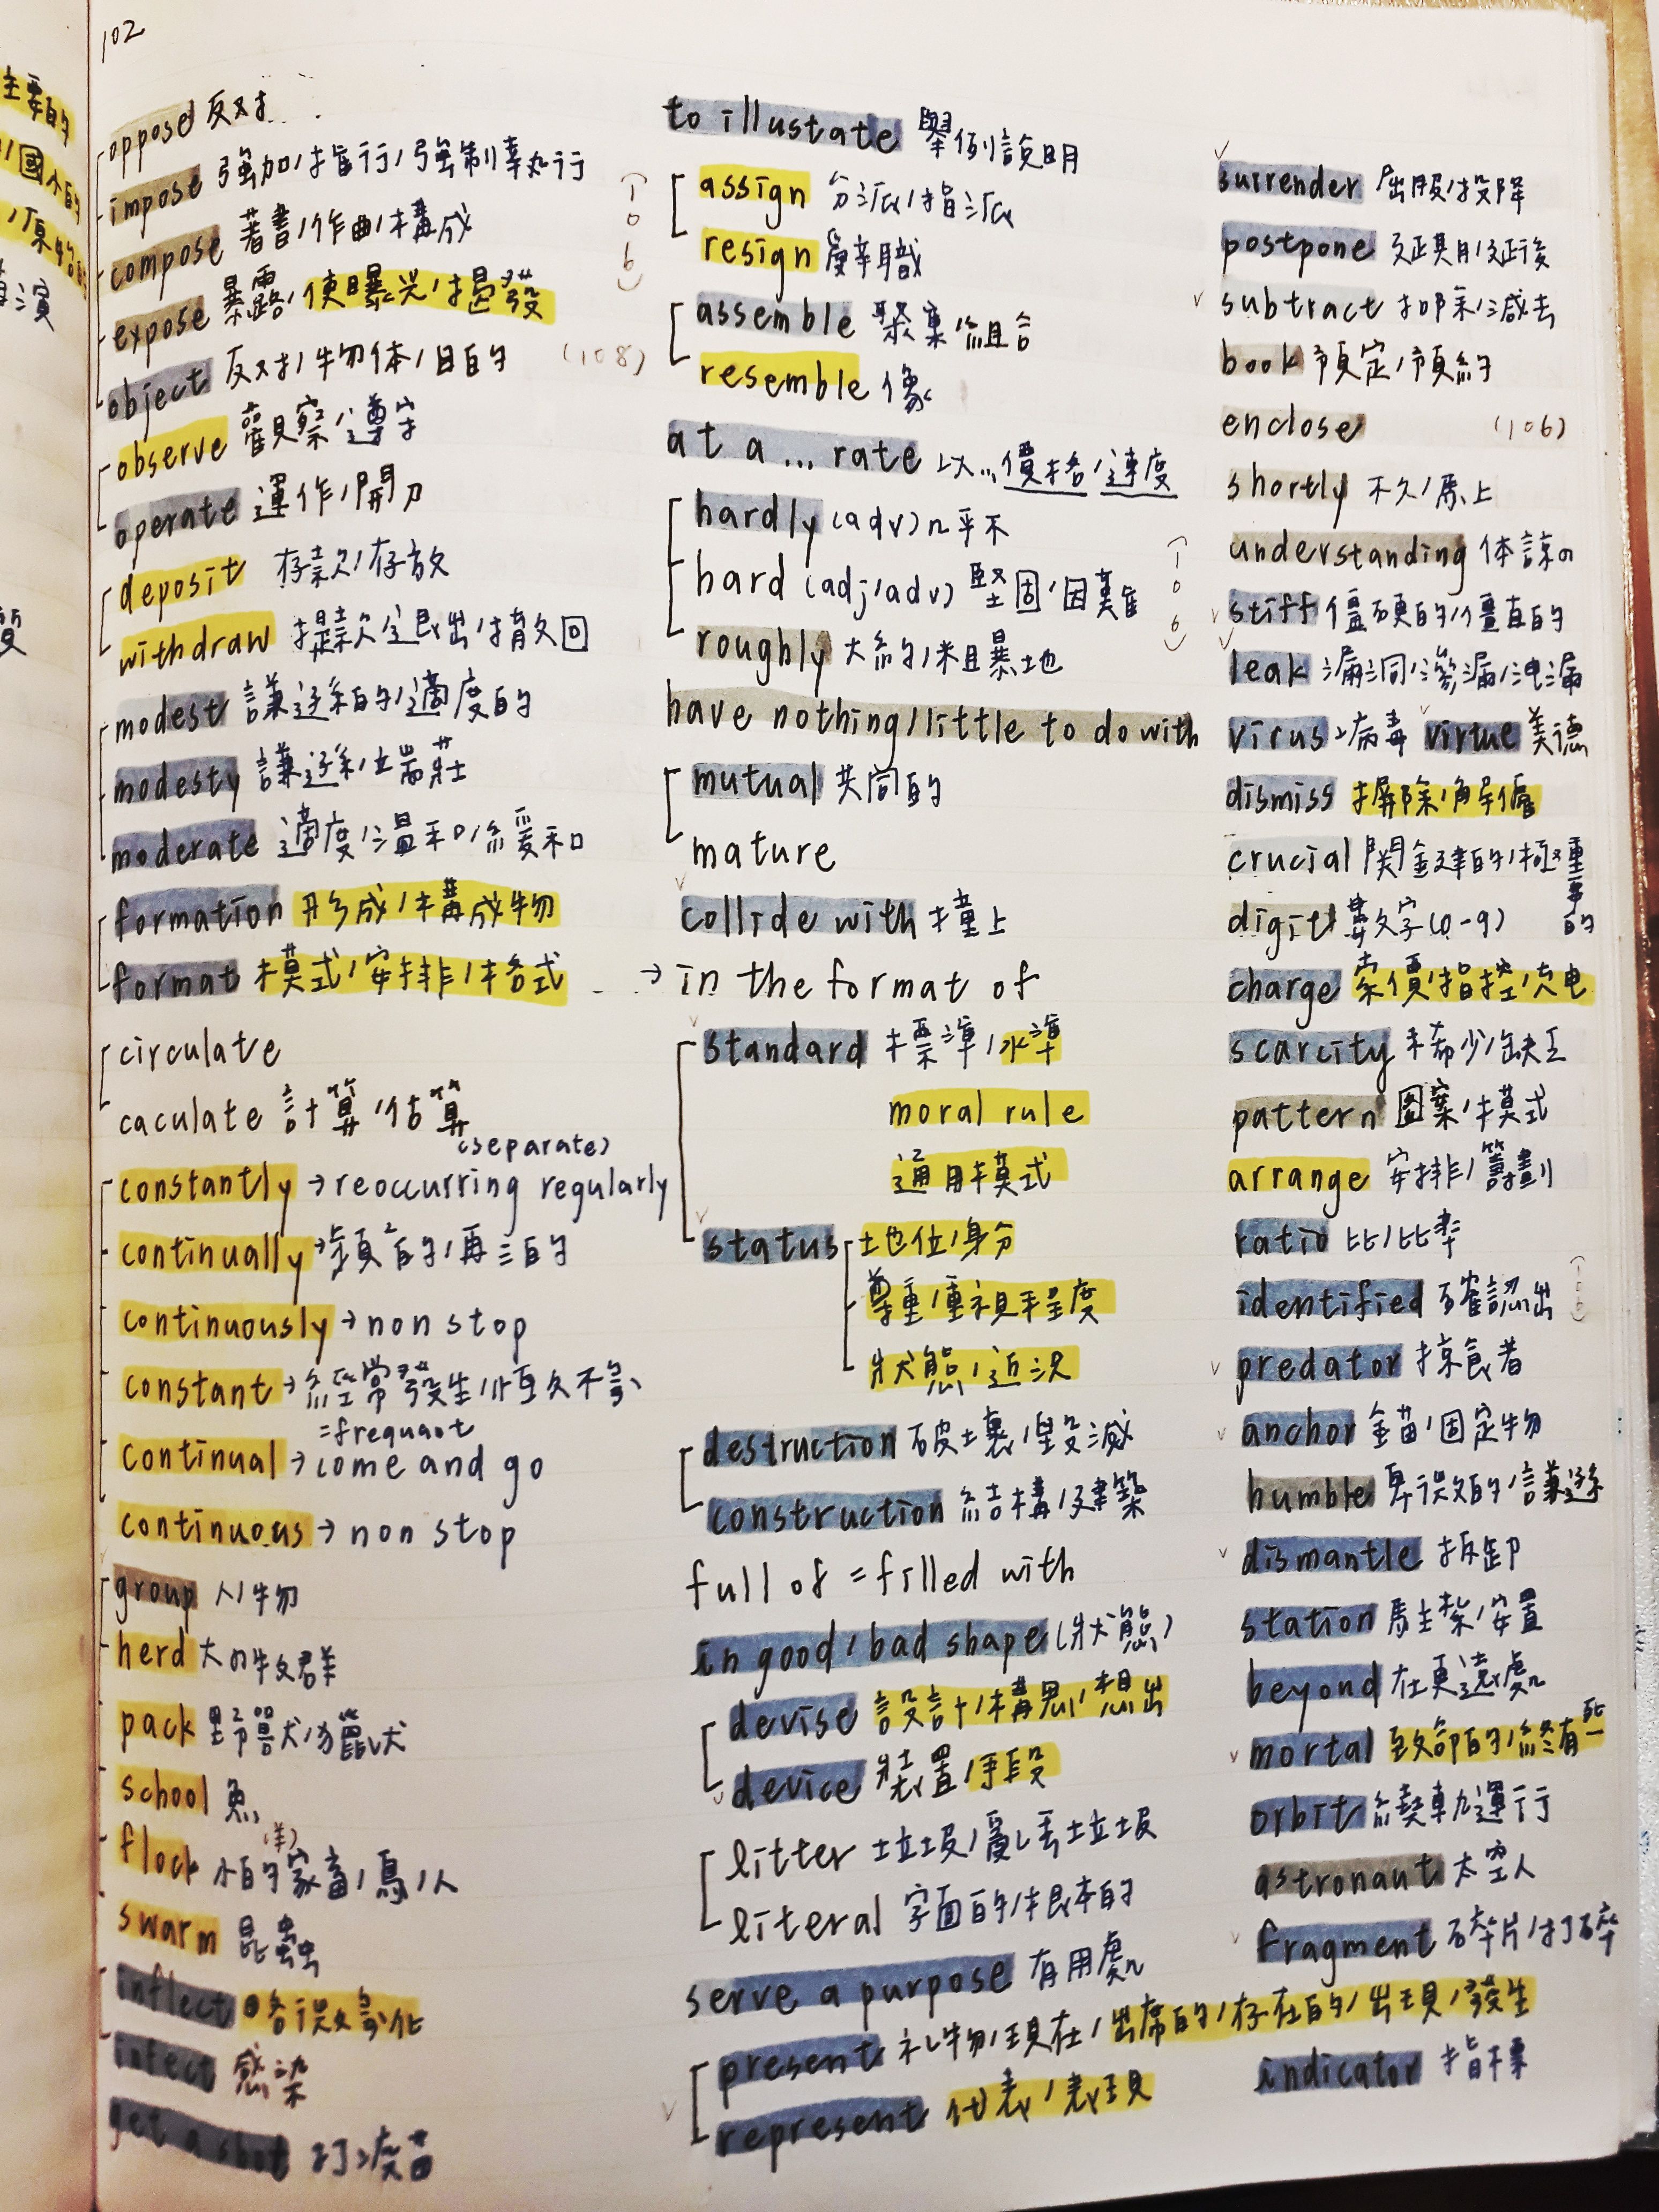 102
oppose 反对
impose 強加/施行/強制執行
compose 著書/作曲/構成
expose 暴露/使曝光/揭發
object 反对/物体/目的 (108)
observe 觀察/遵守
operate 運作/開刀
deposit 存款/存放
withdraw 提款/退出/撤回
modest 謙遜的/適度的
modesty 謙遜/端莊
moderate 適度/溫和/緩和
formation 形成/構成物
format 模式/安排/格式
circulate
caculate 計算/估算
(separate)
constantly → reoccurring regularly
continually → 頻繁的/再三的
continuously → non stop
constant → 經常發生/恆久不變
=frequant
continual → come and go
continuous → non stop
group 人/物
herd 大的牧群
pack 野獸/犬/獵犬
school 魚
(羊)
flock 小的家畜/鳥/人
swarm 昆蟲
inflect 名詞變化
infect 感染
get a shot 打疫苗
to illustate 舉例說明
assign 分派/指派
(106)
resign 辭職
assemble 聚集/組合
resemble 像
at a ... rate 以...價格/速度
hardly (adv) 几乎不
hard (adj/adv) 堅固/困難
(106)
roughly 大約/粗暴地
have nothing/little to do with
mutual 共同的
mature
collide with 撞上
→ in the format of
standard 標準/水準
moral rule
通用模式
status 地位/身分
尊重/重視程度
狀態/近況
destruction 破壞/毀滅
construction 結構/建築
full of = filled with
in good/bad shape (狀態)
devise 設計/構思/想出
device 裝置/手段
litter 垃圾/亂丟垃圾
literal 字面的/根本的
serve a purpose 有用處
present 礼物/現在/出席的/存在的/出現/發生
represent 代表/表現
surrender 屈服/投降
postpone 延期/延後
subtract 扣除/減去
book 預定/預約
enclose (106)
shortly 不久/馬上
understanding 体諒的
stiff 僵硬的/僵直的
leak 漏洞/滲漏/洩漏
virus 病毒 virtue 美德
dismiss 摒除/解僱
crucial 關鍵的/極重要的
digit 數字(0-9)
charge 索價/指控/充电
scarcity 稀少/缺乏
pattern 圖案/模式
arrange 安排/籌劃
ratio 比/比率
identified 確認出 (106)
predator 掠食者
anchor 錨/固定物
humble 卑微的/謙遜
dismantle 拆卸
station 駐紮/安置
beyond 在更遠處
mortal 致命的/終有一死
orbit 繞軌運行
astronaut 太空人
fragment 碎片/打碎
indicator 指標